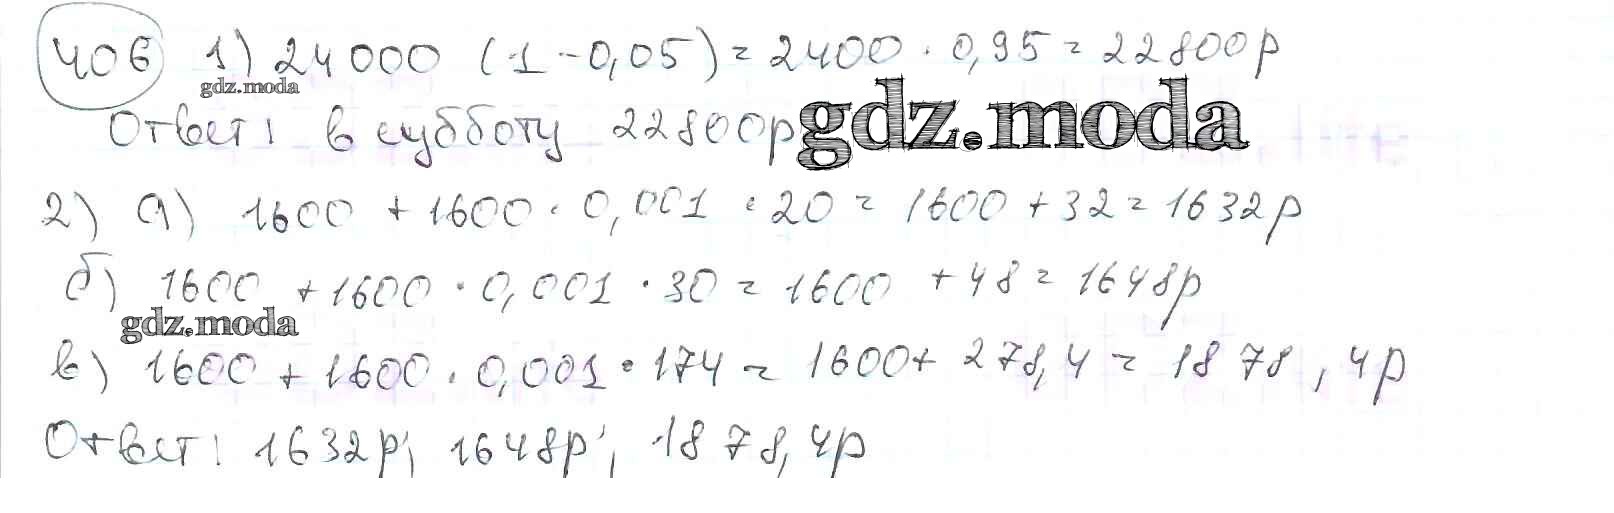 406 1) 24 000 (1 - 0,05) = 2400 · 0,95 = 22800р
gdz.moda
Ответ: в субботу 22800р
gdz.moda
2) а) 1600 + 1600 · 0,001 · 20 = 1600 + 32 = 1632р
б) 1600 + 1600 · 0,001 · 30 = 1600 + 48 = 1648р
gdz.moda
в) 1600 + 1600 · 0,001 · 174 = 1600 + 278,4 = 1878,4р
Ответ: 1632р; 1648р; 1878,4р